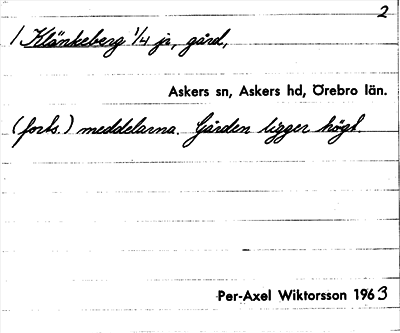 2
/ Klänkeberg 1/4 ja, gård,
Askers sn, Askers hd, Örebro län.
(forts.) meddelarna. Gården ligger högt.
Per-Axel Wiktorsson 1963